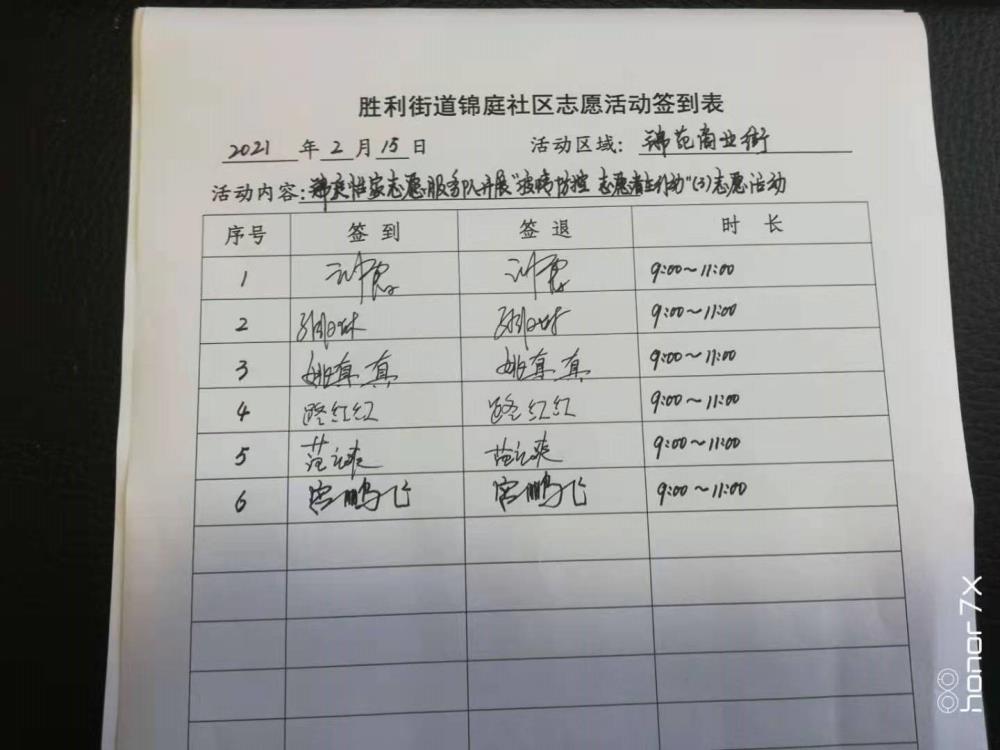 胜利街道锦庭社区志愿活动签到表
2021 年 2 月 15 日 活动区域: 锦苑商业街
活动内容: 锦庭怡家志愿服务队开展"疫情防控 志愿者在行动"(3)志愿活动
序号 签到 签退 时长
1 9:00~11:00
2 9:00~11:00
3 姚真真 姚真真 9:00~11:00
4 路红红 路红红 9:00~11:00
5 范 爽 范 爽 9:00~11:00
6 宫鹏飞 宫鹏飞 9:00~11:00
honor 7X